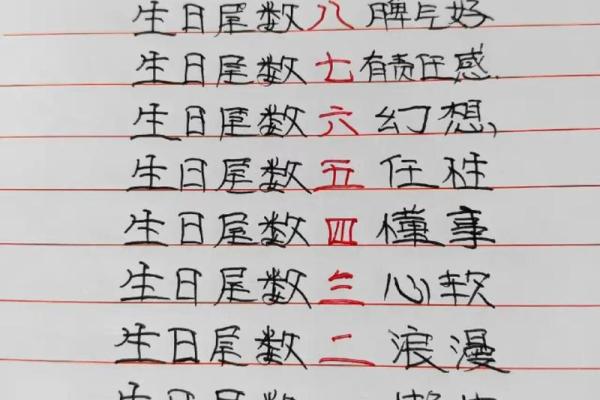 生日尾数八脾气好
生日尾数七有责任感.
生日尾数六幻想,
生日尾数五任性
生日尾数四懂事
生日尾数三心软
生日尾数二浪漫
生日尾数